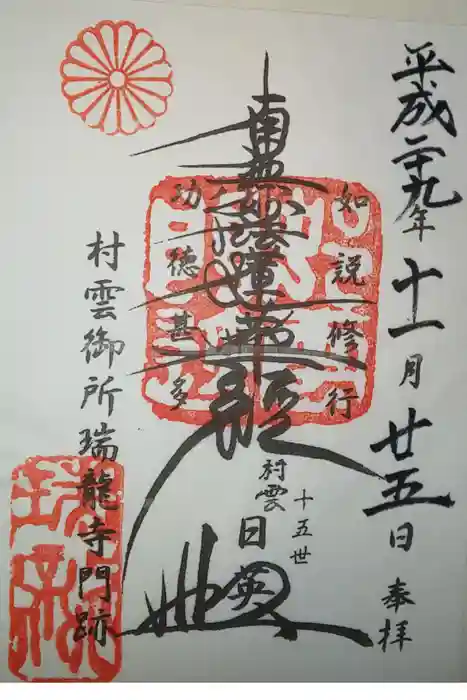 平成二十九年十一月廿五日 奉拝
如説修行
南無妙法蓮華経
功徳甚多
十五世
村雲 日英
村雲御所瑞龍寺門跡